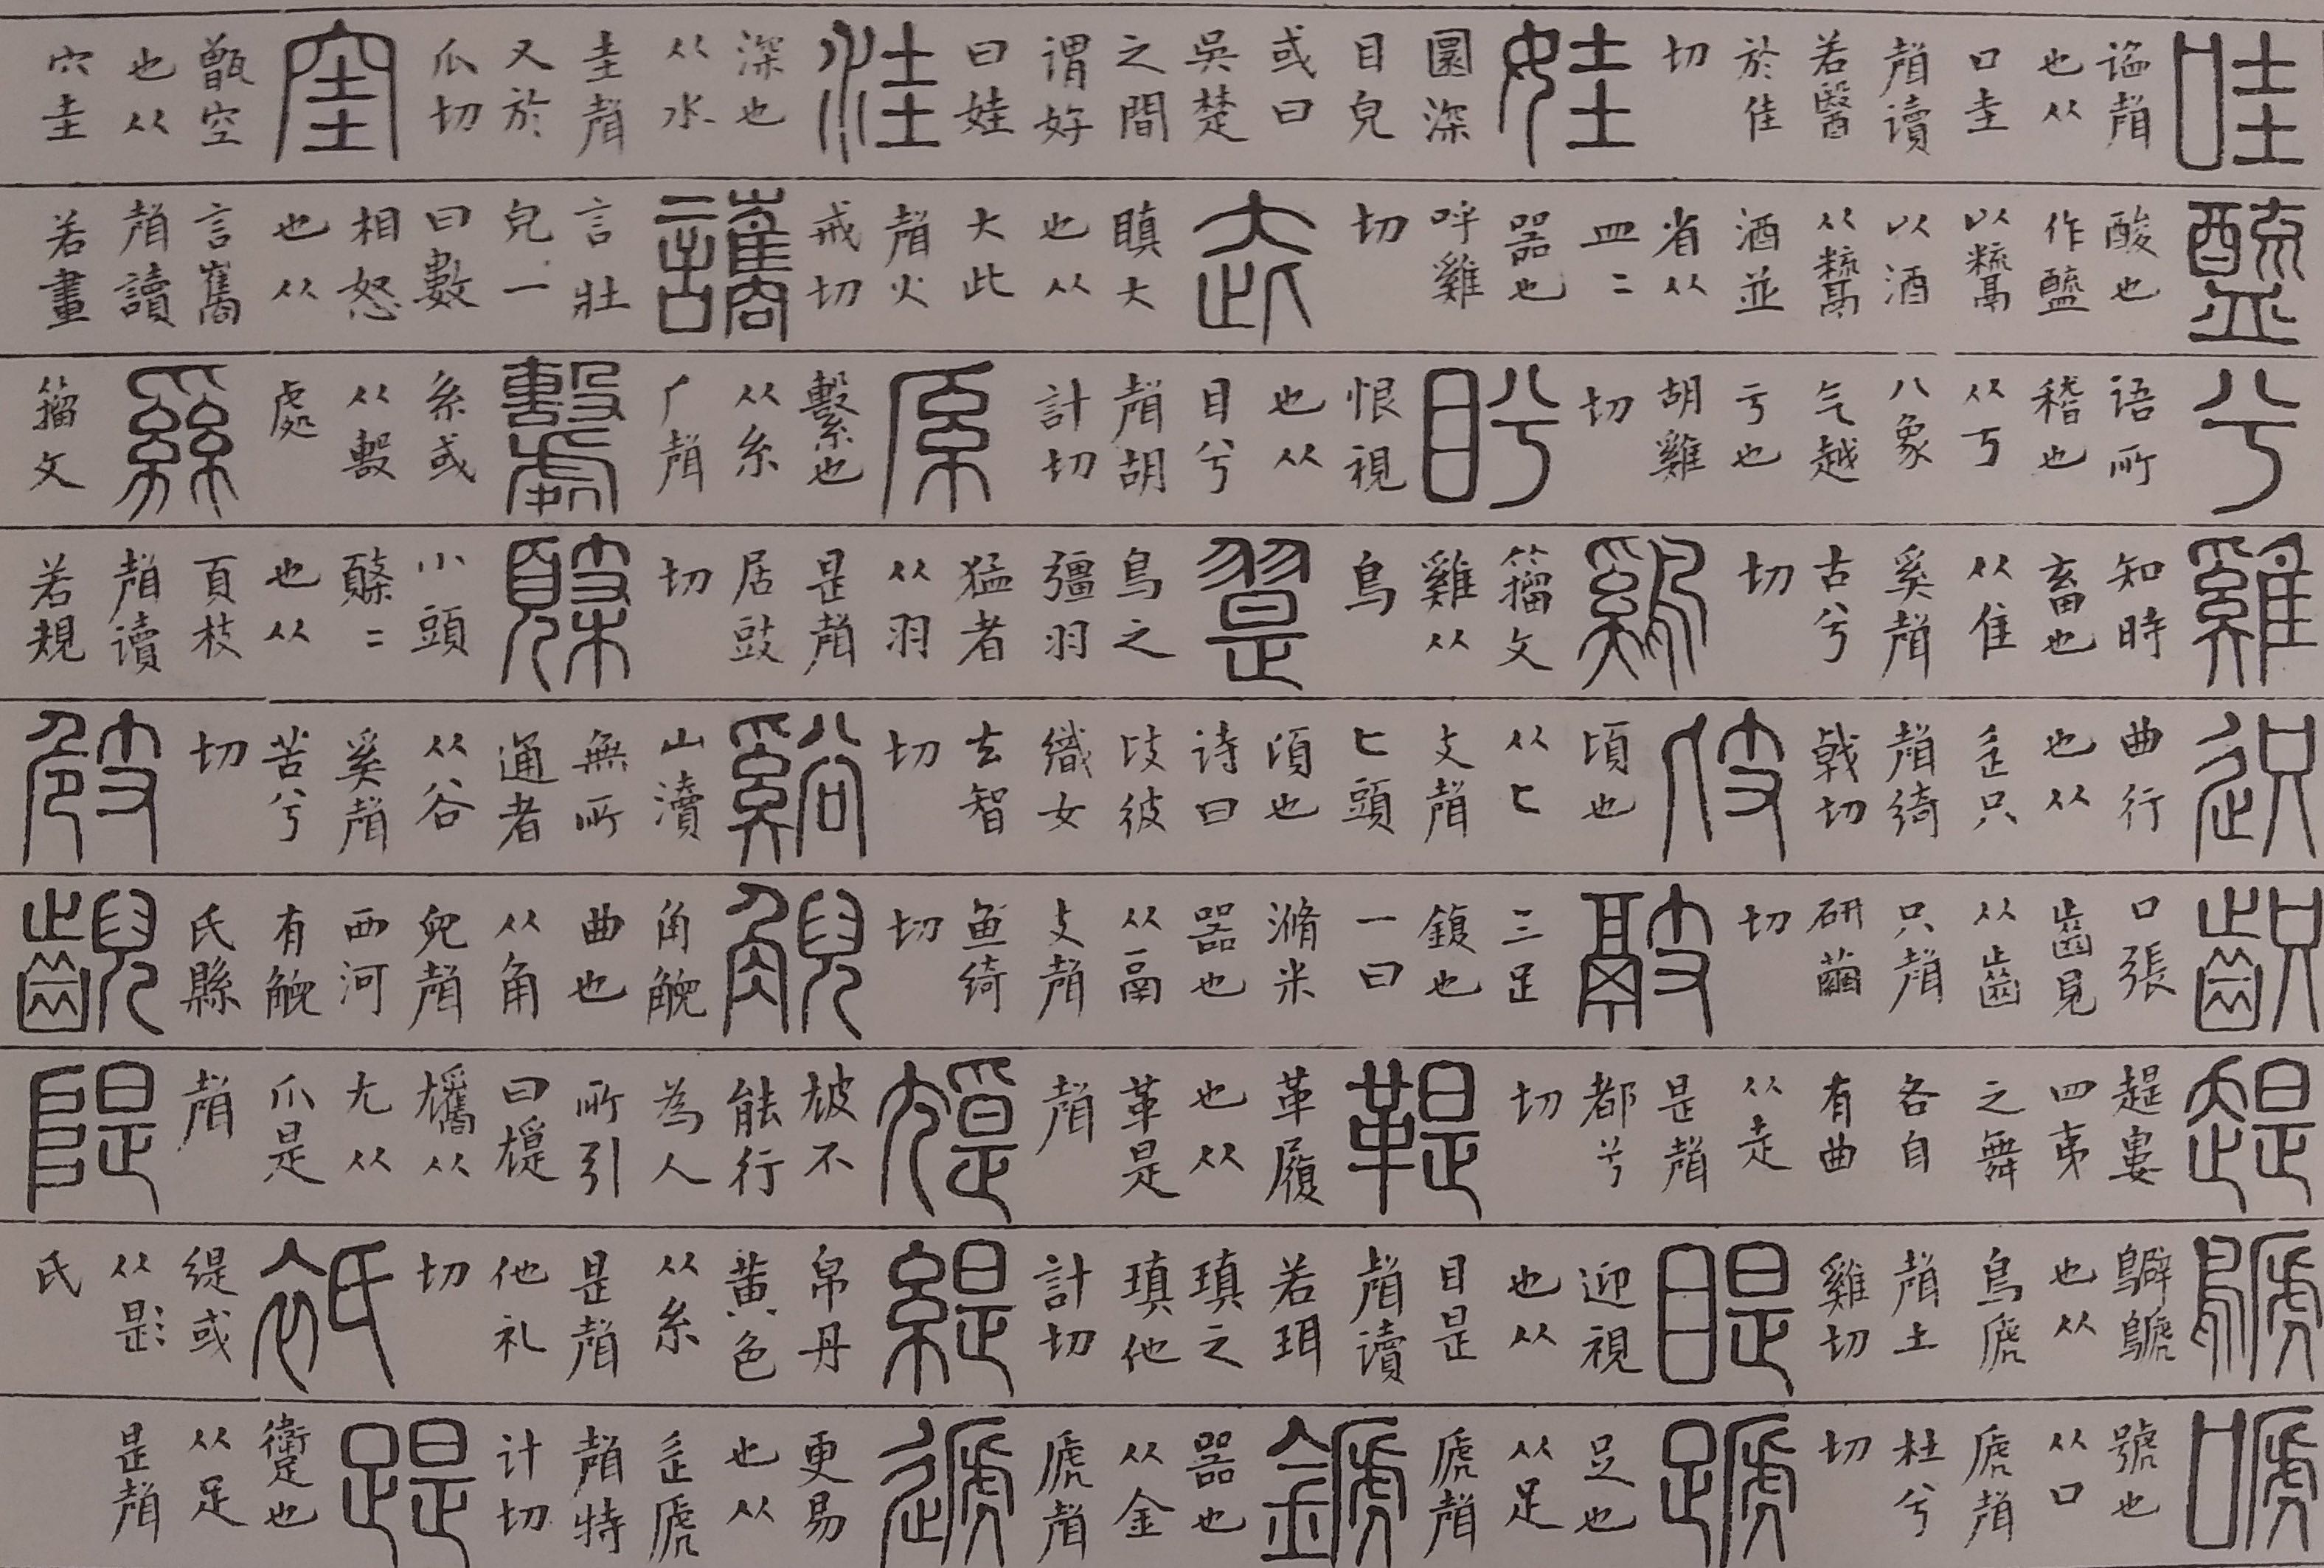 哇諂聲也从口圭聲讀若醫於佳切娃圜深目皃或曰吳楚之間謂好曰娃洼深也从水圭聲又於瓜切窐甑空也从穴圭
醯酸也作醯以鬻以酒从鬻酒並省从皿〻器也呼雞切瞋大也从大此聲火戒切讗言壯皃一曰數相怒也从言巂聲讀若畫
兮語所稽也从丂八象气越亏也胡雞切盻恨視也从目兮聲胡計切系繫也从糸厂聲系或从毄處籀文
雞知時畜也从隹奚聲古兮切鷄籀文雞从鳥翨鳥之彊羽猛者从羽是聲居豉切䫌小頭䫌〻也从頁枝聲讀若規
曲行也从辵只聲綺戟切頃也从匕支聲匕頭頃也詩曰彼織女去智切谿山瀆無所通者从谷奚聲苦兮切
齞口張齒見从齒只聲研繭切三足鍑也一曰滫米器也从鬲支聲魚綺切觬角觬曲也从角兒聲西河有觬氏縣齯
趧趧婁四夷之舞各自有曲从走是聲都兮切鞮革履也从革是聲不能行為人所引曰从尢从爪是聲隄
鷈鷿鷈也从鳥虒聲土雞切睼迎視也从目是聲讀若珥瑱之瑱他計切緹帛丹黃色从糸是聲他礼切衹緹或从氏
嗁號也从口虒聲杜兮切蹏足也从足虒聲器也从金虒聲遞更易也从辵虒聲特計切踶躗也从足是聲